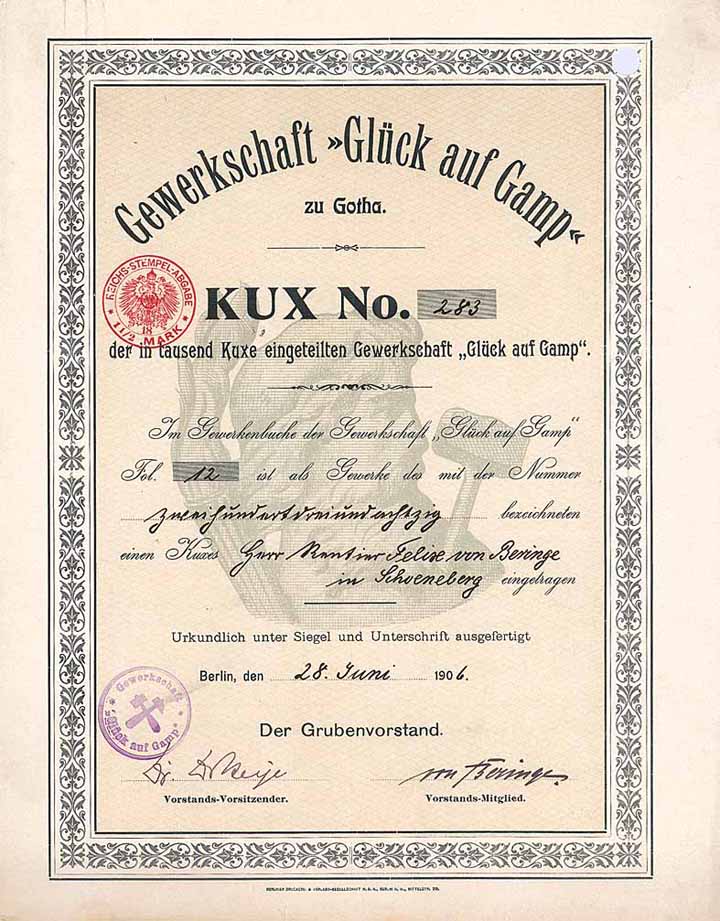 Gewerkschaft »Glück auf Gamp«
zu Gotha.
REICHS-STEMPEL-ABGABE
18
1 1/2 MARK
KUX No. 283
der in tausend Kuxe eingeteilten Gewerkschaft „Glück auf Gamp“.
Im Gewerkenbuche der Gewerkschaft „Glück auf Gamp“
Fol. 12 ist als Gewerke des mit der Nummer
zweihundertdreiundachtzig bezeichneten
einen Kuxes Herr Rentier Felix von Beringe
in Schoeneberg eingetragen
Urkundlich unter Siegel und Unterschrift ausgefertigt
Berlin, den 28. Juni 1906.
Gewerkschaft
„Glück auf Gamp“
Der Grubenvorstand.
Dr.
von Beringe.
Vorstands-Vorsitzender.
Vorstands-Mitglied.
BERLINER DRUCKEREI- & VERLAGS-GESELLSCHAFT M. B. H., BERLIN